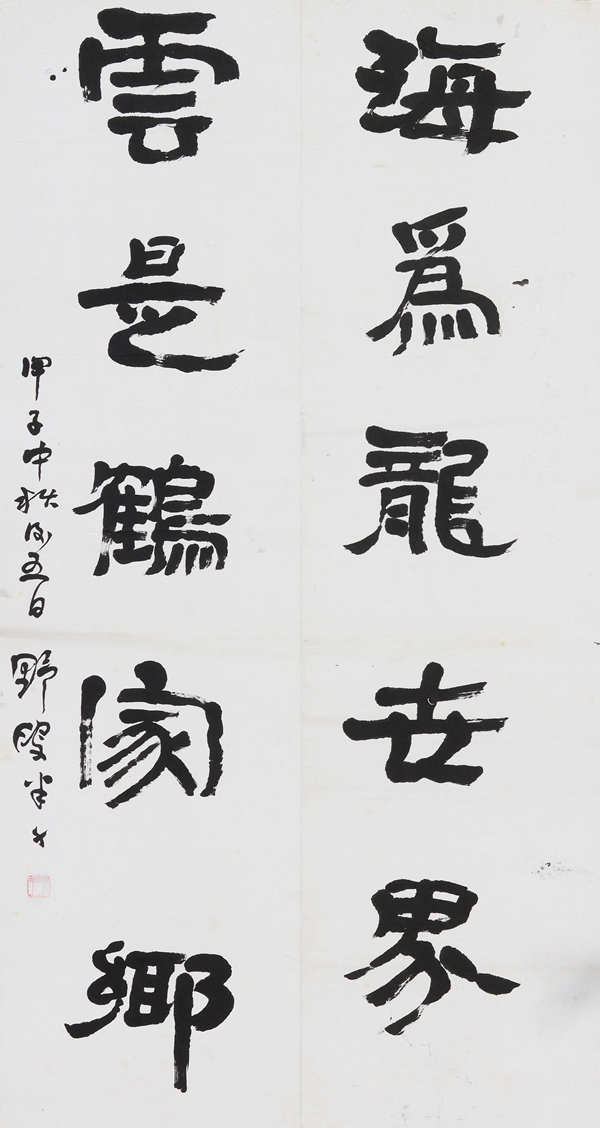 海為龍世界
雲是鶴家鄉
甲子中秋後五日
野